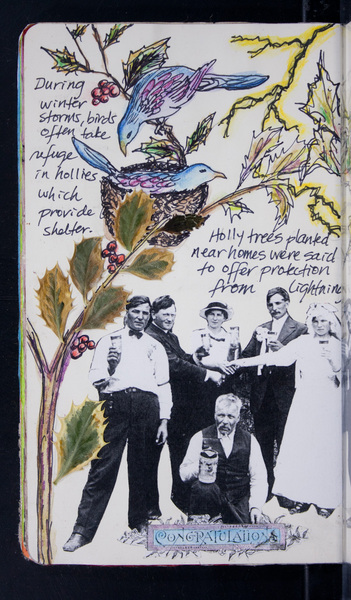 During
winter
storms, birds
often take
refuge
in hollies
which
provide
shelter.
Holly trees planted
near homes were said
to offer protection
from Lightning
CONGRATULATIONS